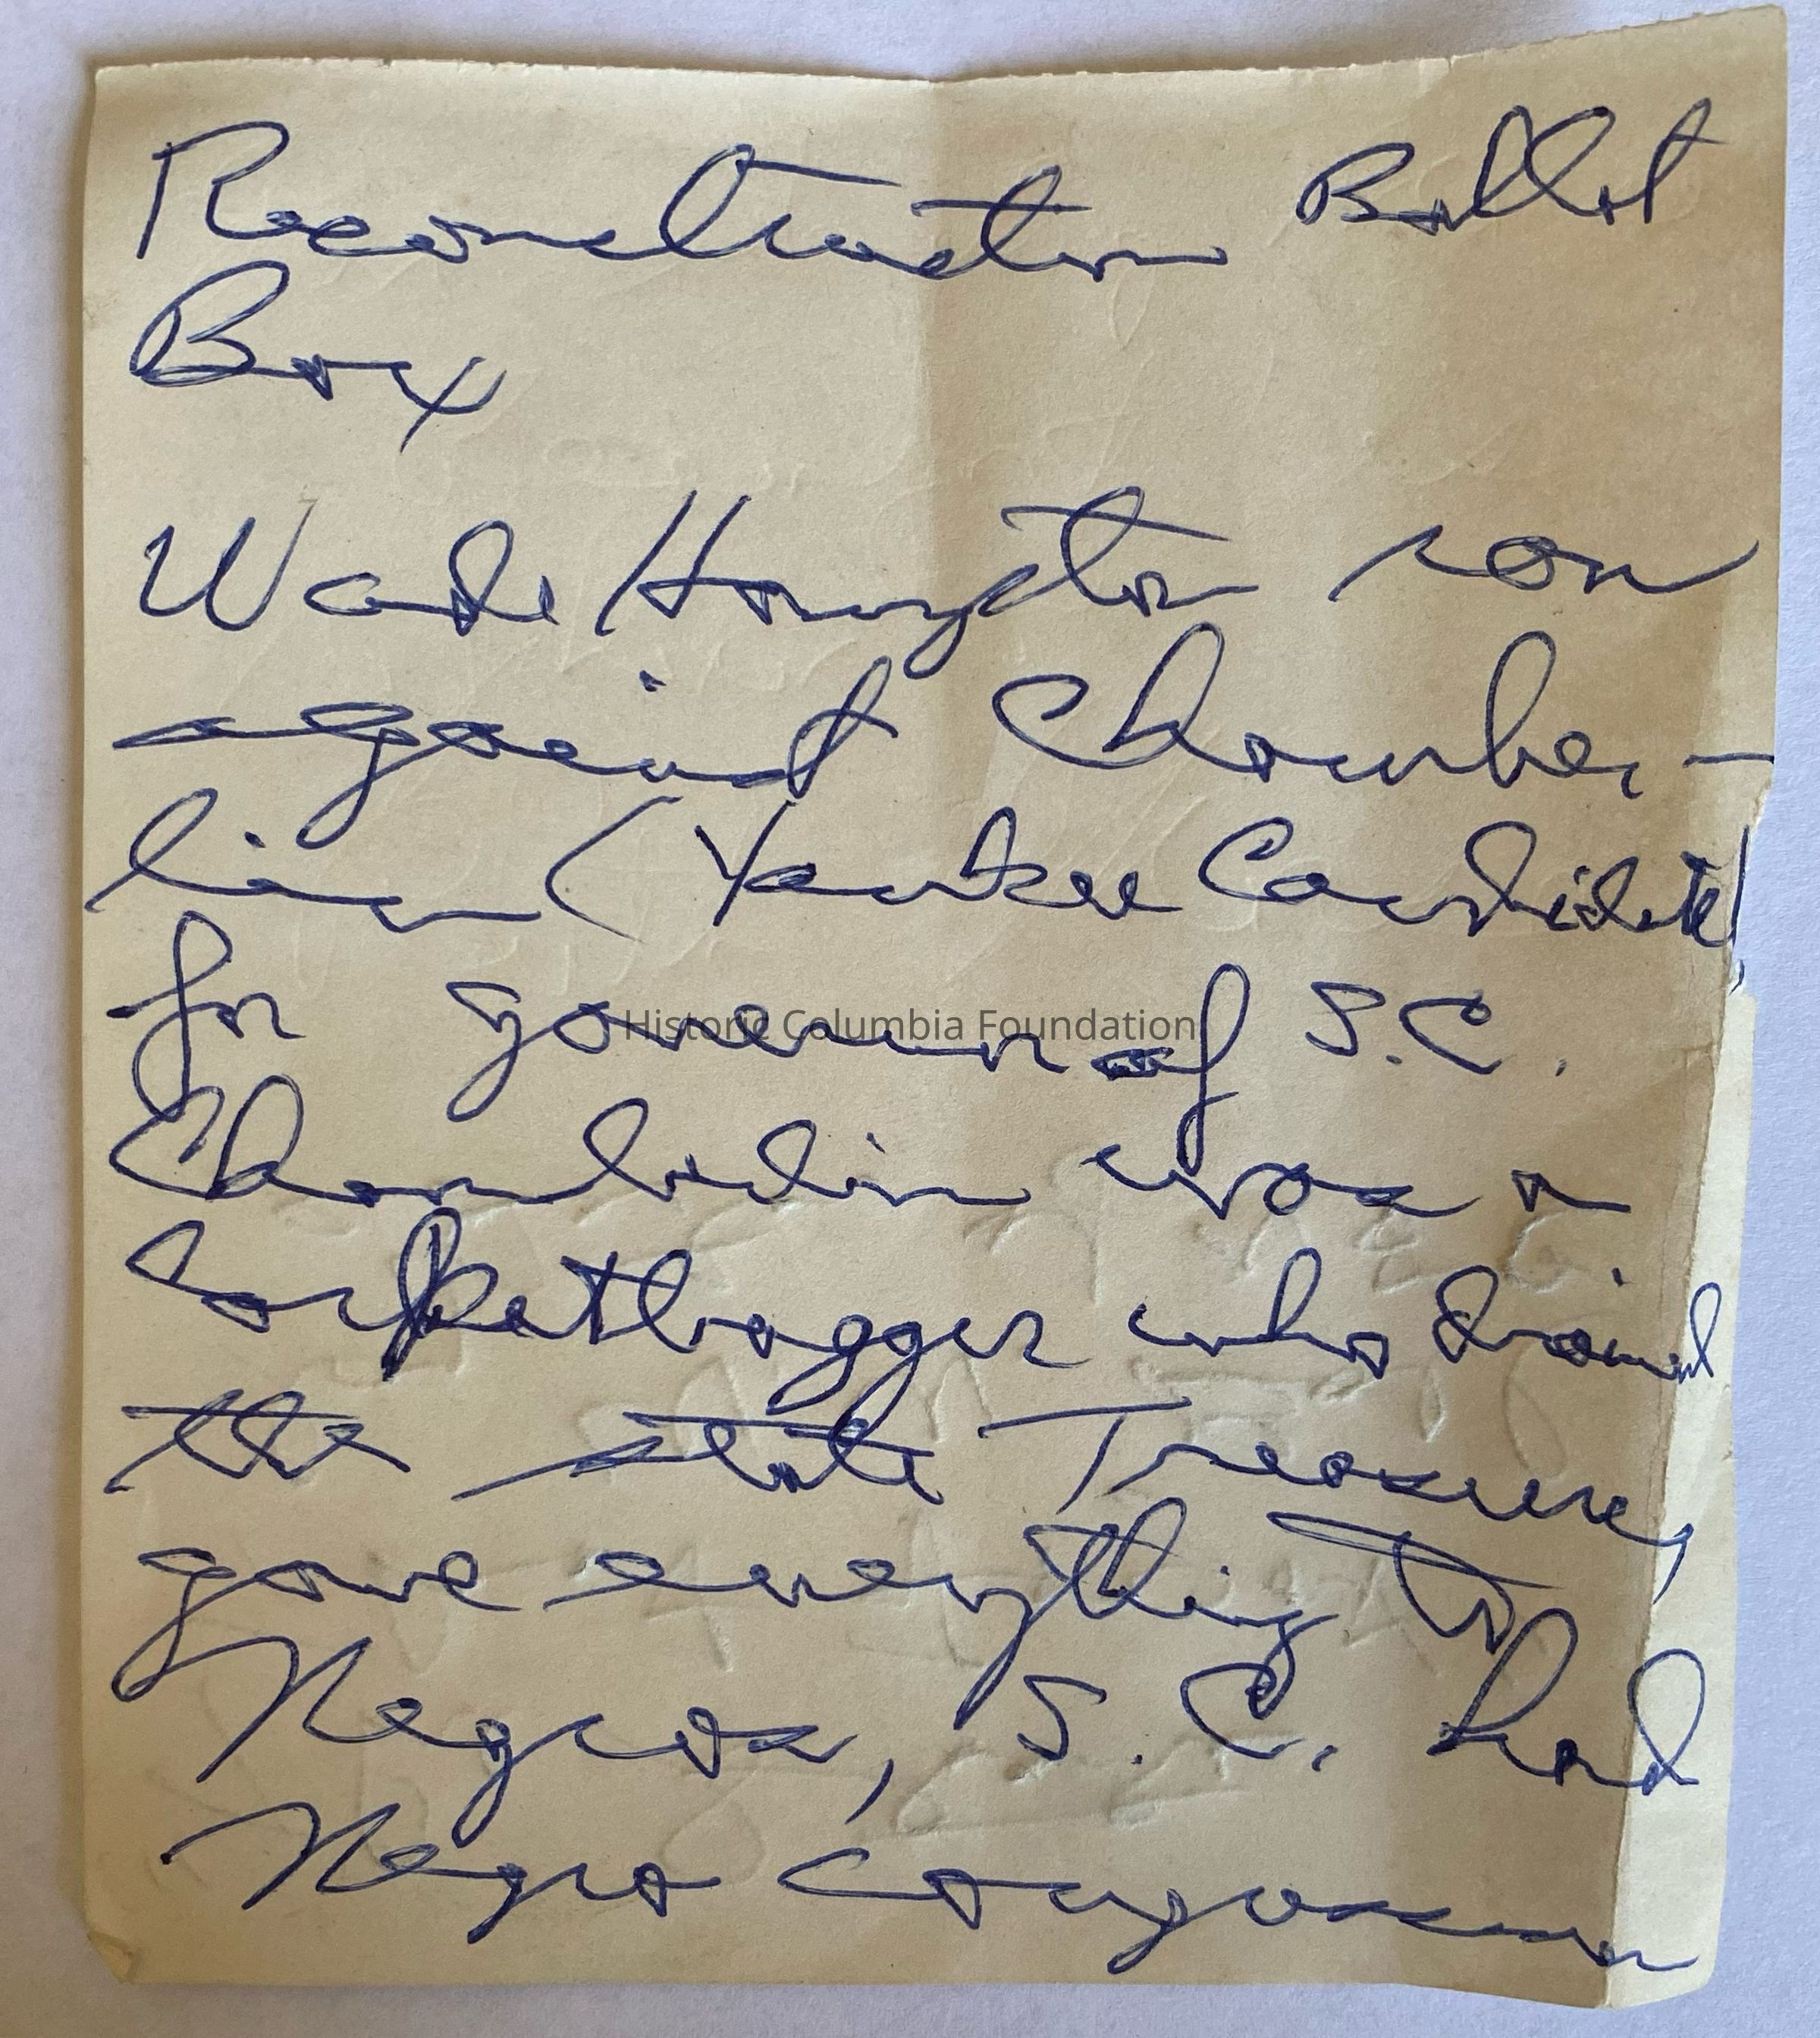 Reconstruction Ballot
Box
Wade Hampton ran
against Chamber-
lain (Yankee Candidate)
for governor of S.C.
Historic Columbia Foundation
Chamberlin was a
Carpetbagger who drained
the state Treasury,
gave everything to
Negroes, S.C. had
Negro Congressman